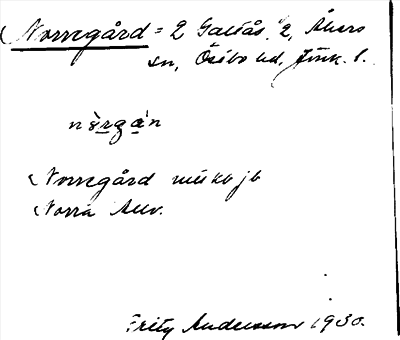 Norregård = 2 Galtås, 2, Åkers
sn, Östbo hd, Jönk. l.
nòrgan
Norregård jb
Norra
Fritz Andersson 1930.